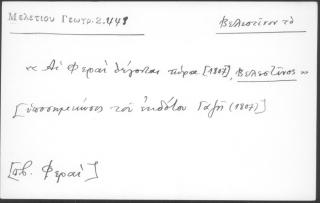 Μελετίου Γεωγρ. 2.448
Βελεστῖνον τὸ
« Αἱ Φεραὶ λέγονται τώρα [1807], Βελεστῖνος »
[ὑποσημείωσις τοῦ ἐκδότου Γαζῆ (1807)]
[πβ. Φεραὶ]